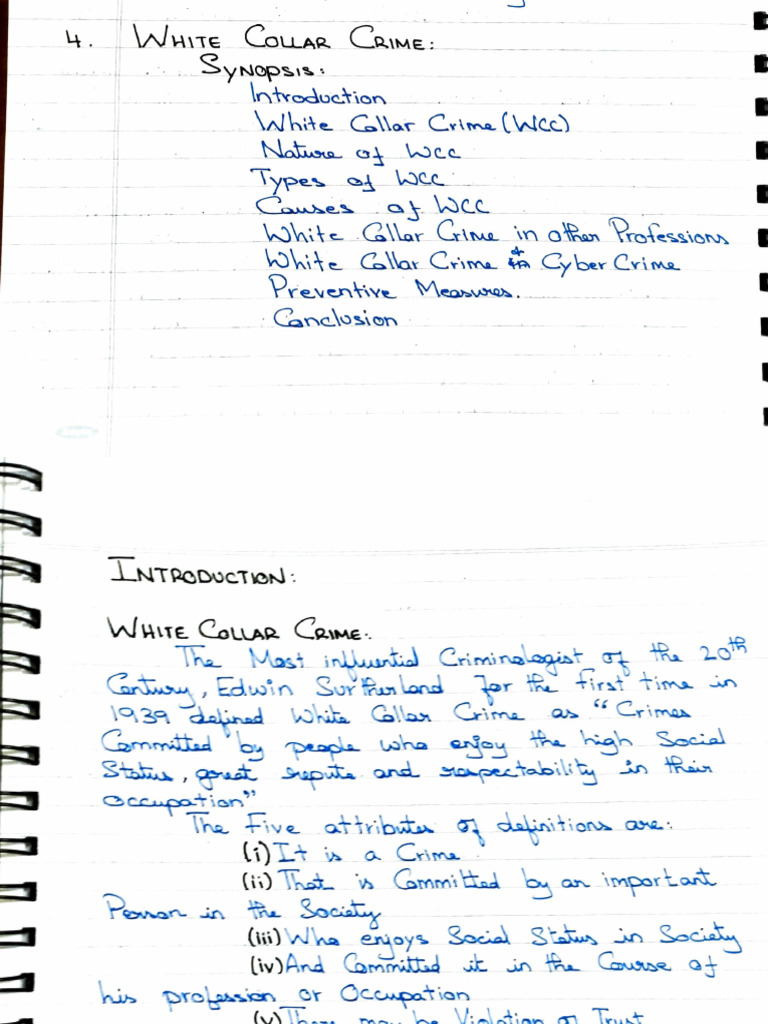 4. WHITE COLLAR CRIME:
SYNOPSIS:
Introduction
White Collar Crime (WCC)
Nature of WCC
Types of WCC
Causes of WCC
White Collar Crime in other Professions
White Collar Crime & Cyber Crime
Preventive Measures.
Conclusion
INTRODUCTION:
WHITE COLLAR CRIME:
The Most influential Criminologist of the 20th
Century, Edwin Surtherland for the first time in
1939 defined White Collar Crime as "Crimes
Committed by people who enjoy the high Social
Status, great repute and respectability in their
occupation"
The Five attributes of definitions are:
(i) It is a Crime
(ii) That is Committed by an important
Person in the Society
(iii) Who enjoys Social Status in Society
(iv) And Committed it in the Course of
his profession or Occupation
(v) There may be Violation of Trust